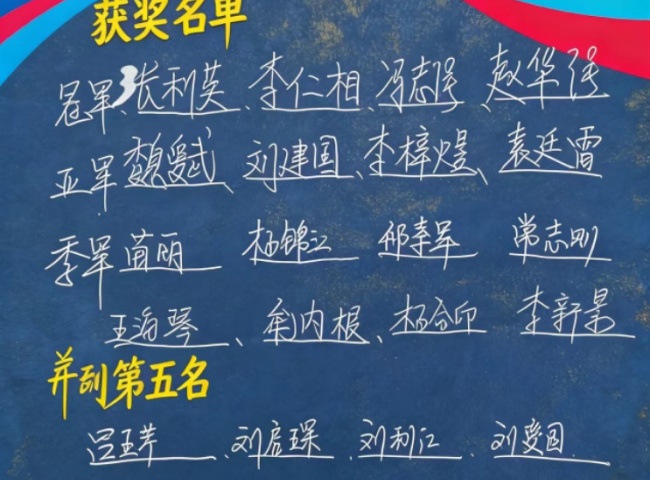 获奖名单
冠军、张利英、李仁相、冯志强、赵华强
亚军 魏爱斌、刘建国、李梓煜、袁廷雷
季军 苗丽 杨锦江 邵建军 常志刚
王海琴、 杨合印 李新景
并列第五名
吕玉芹、刘启琛、刘利江、刘爱国